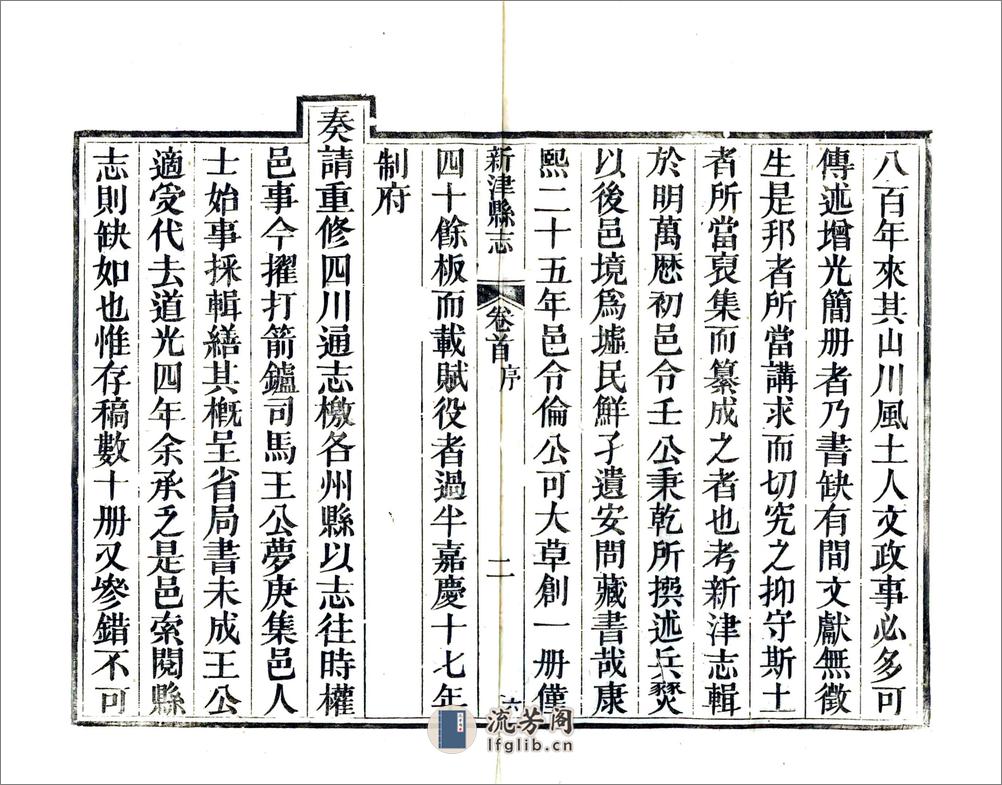 八百年來其山川風土人文政事必多可
傳述增光簡册者乃書缺有間文獻無徵
生是邦者所當講求而切究之抑守斯土
者所當裒集而纂成之者也考新津志輯
於明萬厯初邑令王公秉乾所撰述兵燹
以後邑境爲墟民鮮孑遺安問藏書哉康
熙二十五年邑令倫公可大草創一册僅
新津縣志 卷首 序 二 六
四十餘板而載賦役者過半嘉慶十七年
制府
奏請重修四川通志檄各州縣以志往時權
邑事今擢打箭鑪司馬王公夢庚集邑人
士始事採輯繕其概呈省局書未成王公
適受代去道光四年余承乏是邑索閱縣
志則缺如也惟存稿數十册又參錯不可
流芳阁
lfglib.cn